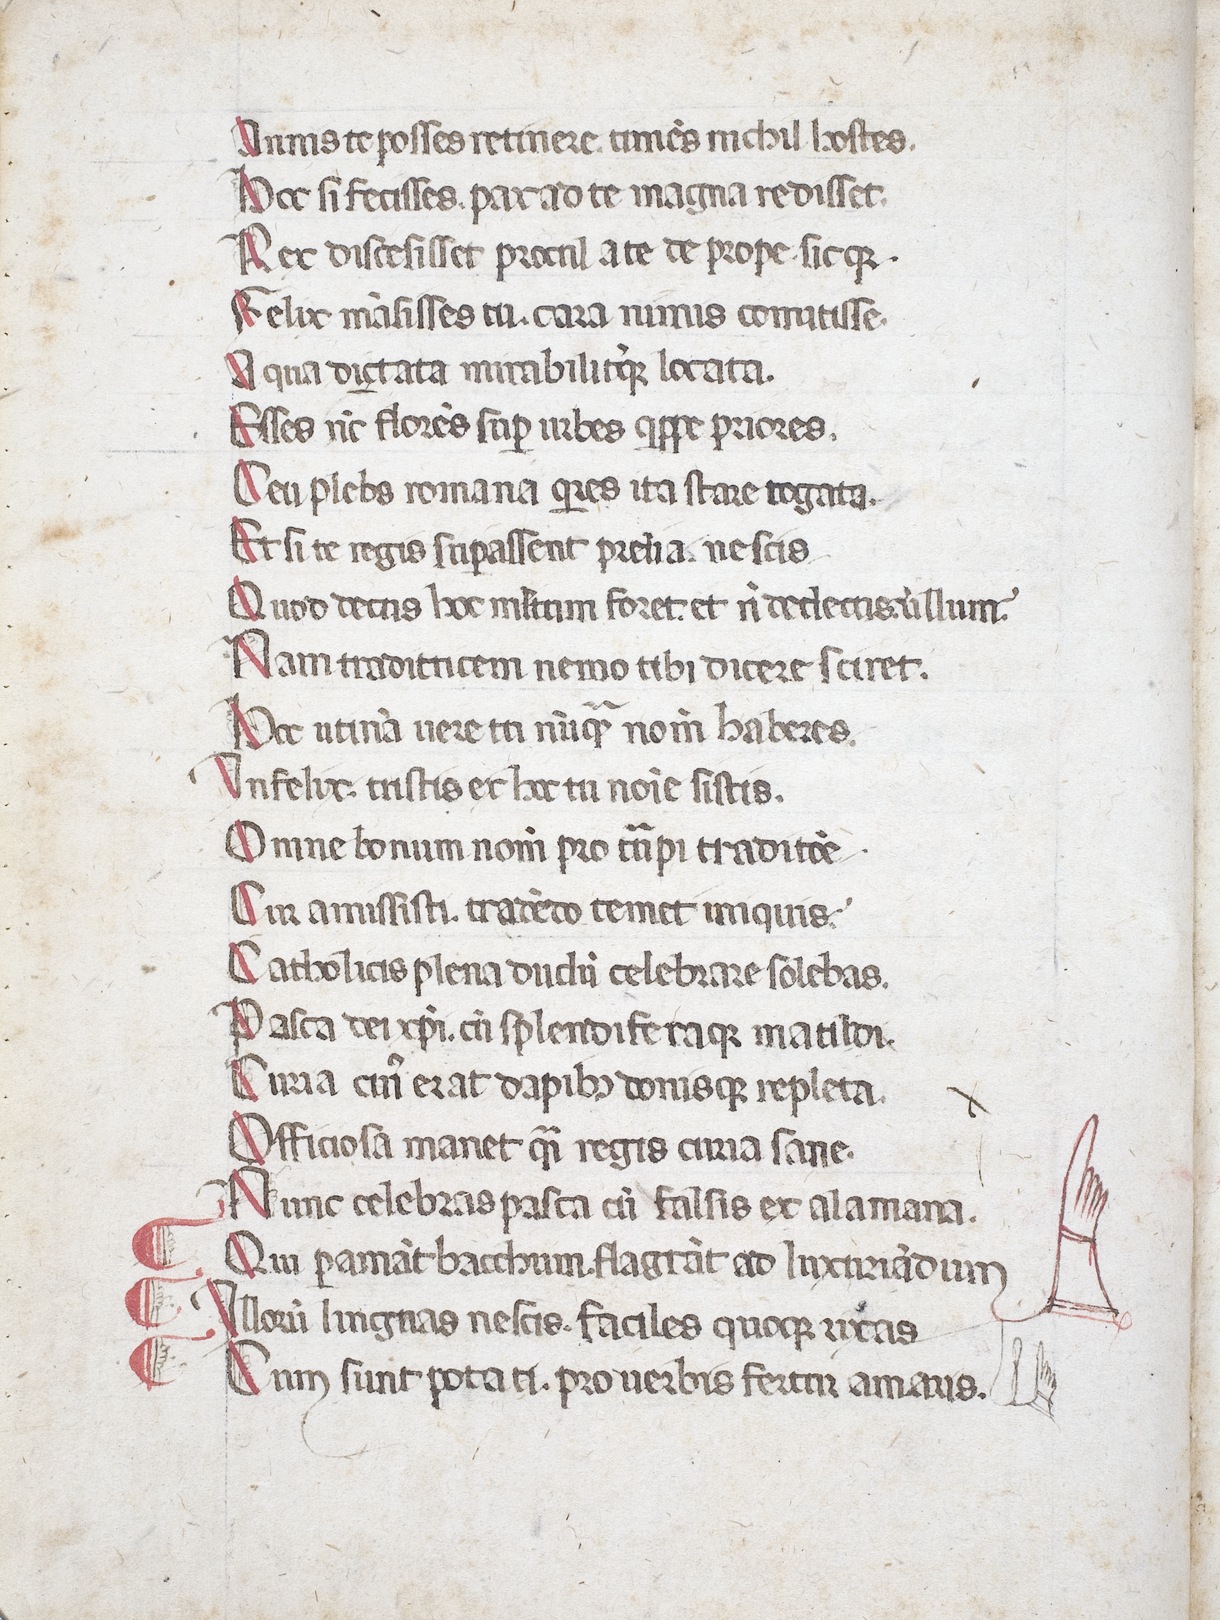 Annis te posses retinere. timēs nichil hostes.
Hec si fecisses. pax ad te magna redisset.
Rex discesisset procul a te de prope sicq;.
Felix māsisses tu. cara nimis comitisse.
A qua dictata mirabiliterq; locata.
Esses nc̄ florēs sup̄ urbes quippe priores.
Ceu plebs romana q̄res ita stare rogata.
Et si te regis stipassent prelia. nescis
Quod decus hoc multum foret. et n̄ dedecus ullum.
Nam traditricem nemo tibi dicere sciret.
Hec utinā uere tu nūq̄ nom̄ haberes.
Infelix. tristis ex hoc tu noīe sistis.
Omne bonum nom̄ pro turpi traditōe.
Cur amisisti. tradēdo temet iniquis.
Catholicis plena ducibꝰ celebrare solebas.
Pasca dei xp̄i. cū splendiferaq; matildi.
Curia cuiꝰ erat dapibꝫ donisq; repleta.
Officiosa manet q̄si regis curia sane.
Nunc celebras pasca cū falsis ex alamana.
Qui p̄amāt bacchum. flagrāt ad luxuriādum
Illorū linguas nescis. faciles quoq; rixas
Cum sunt potati. pro uerbis fertur amaris.